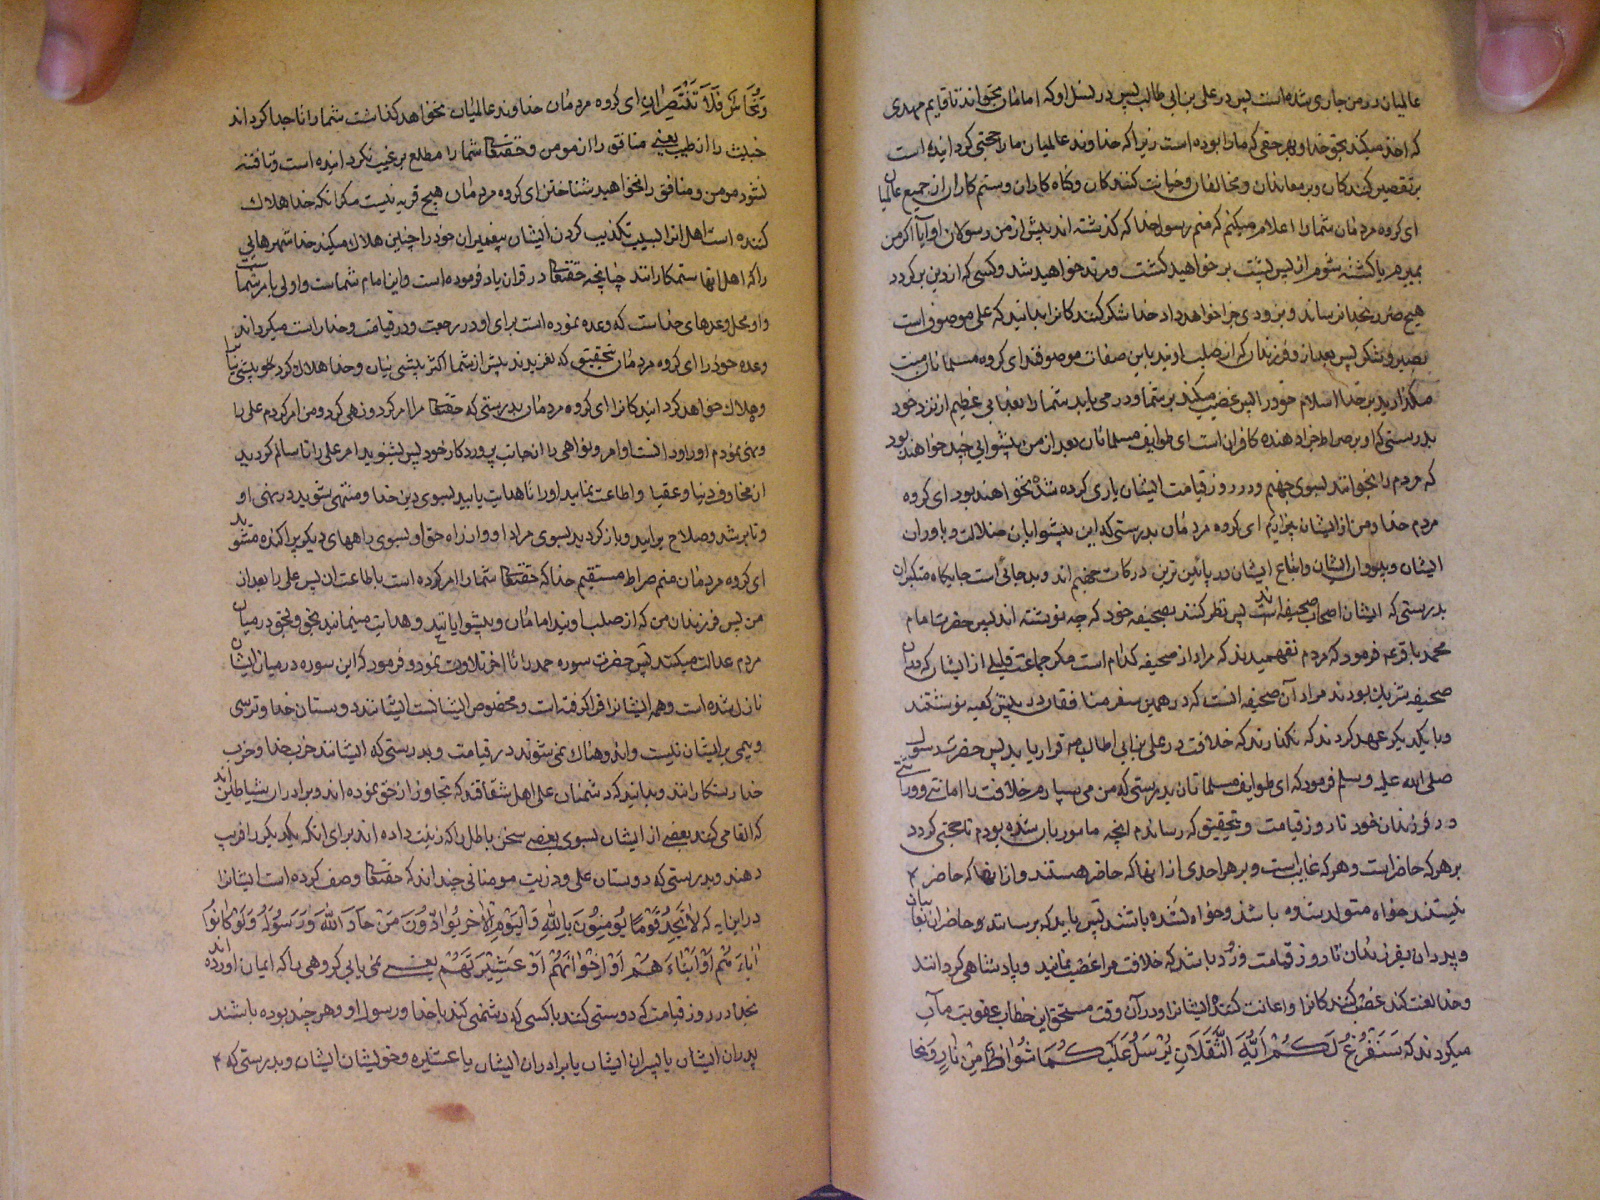 عالمیان در من جاری شده است پس در علی بن ابی طالب پس در نسل او که امامان بحق‌اند تا قایم مهدی
که اخذ میکند بحق خدا و بهر حقی که ما را بوده است زیرا که خداوند عالمیان ما را حجتی کردانیده است
بر تقصیر کنندکان و بر معاندان و مخالفان و خیانت کنندکان و کناه کاران و ستم کاران از جمیع عالمیان
ای کروه مردمان شما را اعلام میکنم که منم رسول خدا که کذشته اند پیش از من رسولان او آیا اکر من
بمیرم یا کشته شوم از پس پشت بر خواهید کشت و مرتد خواهید شد و کسی که از دین بر کردد
هیچ ضرر بخدا نرساند و بزودی جزا خواهد داد خدا شکر کنندکانرا بدانید که علی موصوف است
بصبر و شکر پس بعد از و فرزندان که از صلب اویند باین صفات موصوفند ای کروه مسلمانان منت
مکذارید بر خدا اسلام خود را پس غضب میکند بر شما و در می یابد شما را بعذابی عظیم از نزد خود
بدرستی که او بر صراط جزا دهنده کافران است ای طوایف مسلمانان بعد از من پیشوایی چند خواهند بود
که مردم را بخوانند بسوی جهنم و در روز قیامت ایشان یاری کرده شده نخواهند بود ای کروه
مردم خدا و من از ایشان بیزاریم ای کروه مردمان بدرستی که این پیشوایان ضلالت و یاوران
ایشان و پیروان ایشان و اتباع ایشان در پائین ترین درکات جهنم اند و بد جائی است جایکاه متکبران
بدرستی که ایشان اصحاب صحیفه اند پس نظر کنند بصحیفه خود که چه نوشته اند پس حضرت امام
محمد باقر ع فرمود که مردم نفهمیدند که مراد از صحیفه کدام است مکر جماعت قلیلی از ایشان که در آن
صحیفه شریک بودند مراد آن صحیفه است که در همین سفر منافقان در پیش کعبه نوشتند
و با یکدیکر عهد کردند که نکذارند که خلافت در علی بن ابی طالب ع قرار یابد پس حضرت رسول
صلی الله علیه و سلم فرمود که ای طوایف مسلمانان بدرستی که من می سپارم خلافت را امانتی و وراثتی
در فرزندان خود تا روز قیامت و بتحقیق که رساندم آنچه مامور بان شده بودم تا حجتی کردد
بر هر که حاضر است و هر که غایب است و بر هر احدی از انها که حاضر هستند و از انها که حاضر
نیستند خواه متولد شده باشند و خواه نشده باشند پس باید که برسانند حاضران بغایبان
و پدران بفرزندان تا روز قیامت و زود باشد که خلافت مرا غصب نمایند و پادشاهی کردانند
و خدا لعنت کند غصب کنندکانرا و اعانت کنندۀ ایشانرا و در آن وقت مستحق این خطاب عقوبت مآب
میکردند که سَنَفْرُغُ لَکُمْ اَیُّهَ الثَّقَلَانِ یُرْسَلُ عَلَیْکُمَا شُوَاظٌ مِنْ نَارٍ وَنُحَا
وَنُحَاسٌ فَلَا تَنْتَصِرَانِ ای کروه مردمان خداوند عالمیان نخواهد کذاشت شما را تا جدا کرداند
خبیث را از طیب یعنی منافق را از مومن و حقتعالی شما را مطلع بر غیب نکردانیده است و تا فتنه
نشود مومن و منافق را نخواهید شناختن ای کروه مردمان هیچ قریه نیست مکر آنکه خدا هلاک
کننده است اهل انرا بسبب تکذیب کردن ایشان پیغمبران خود را چنین هلاک میکند خدا شهرهایی
را که اهل انها ستمکارانند چنانچه حقتعالی در قران یاد فرموده است و این امام شماست و اولی بامر شماست
و او محل وعدهای خداست که وعده نموده است برای او در رجعت و در قیامت و خدا راست میکرداند
وعده خود را ای کروه مردمان بتحقیق که لغزیدند پیش از شما اکثر پیشینیان و خدا هلاک کرد پیشینیان را
و هلاک خواهد کرد ایندکانرا ای کروه مردمان بدرستی که حقتعالی مرا امر کرد و نهی کرد و من امر کردم علی را
و نهی نمودم او را و دانست اوامر و نواهی را از جانب پروردکار خود پس بشنوید امر علی را تا سالم کردید
از مخاوف دنیا و عقبا و اطاعت نمایید او را تا هدایت یابید بسوی دین خدا و منتهی شوید در نهی او
و تا برشد و صلاح برایید و باز کردید بسوی مراد او و از راه حق او بسوی راههای دیکر پراکنده مشوید
ای کروه مردمان منم صراط مستقیم خدا که حقتعالی شما را امر کرده است باطاعت ان پس علی را بعد از
من پس فرزندان من که از صلب اویند امامان و پیشوایانند و هدایت مینمایند بحق و بحق در میان
مردم عدالت میکنند پس حضرت سوره حمد را تا آخر تلاوت نمود و فرمود که این سوره در میان ایشان
نازل شده است و همه ایشانرا فرا کرفته است و مخصوص ایشانست ایشانند دوستان خدا و ترسی
و بیمی بر ایشان نیست و اندوهناک نمی شوند در قیامت و بدرستی که ایشانند حزب خدا و حزب
خدا رستکارانند و بدانید که دشمنان علی اهل شقاقند که تجاوز از حق نموده اند و برادران شیاطین اند
که القا می کنند بعضی از ایشان بسوی بعضی سخن باطل را که زینت داده اند برای آنکه یکدیکر را فریب
دهند و بدرستی که دوستان علی و ذریت مومنانی چند اند که حقتعالی وصف کرده است ایشانرا
در این ایه که لَا تَجِدُ قَوْمًا یُؤمِنُونَ بِاللّٰهِ وَالْیَوْمِ الْاٰخِرِ یُوَادُّونَ مَنْ حَادَّ اللّٰهَ وَرَسُولَهُ وَلَوْ کَانُوا
اٰبَاءَهُمْ اَوْ اَبْنَاءَهُمْ اَوْ اِخْوَانَهُمْ اَوْ عَشِیرَتَهُمْ یعنی نمی یابی کروهی را که ایمان آورده اند
بخدا و روز قیامت که دوستی کنند با کسی که دشمنی کند با خدا و رسول او و هر چند بوده باشند
پدران ایشان یا پسران ایشان یا برادران ایشان یا عشیره و خویشان ایشان و بدرستی که